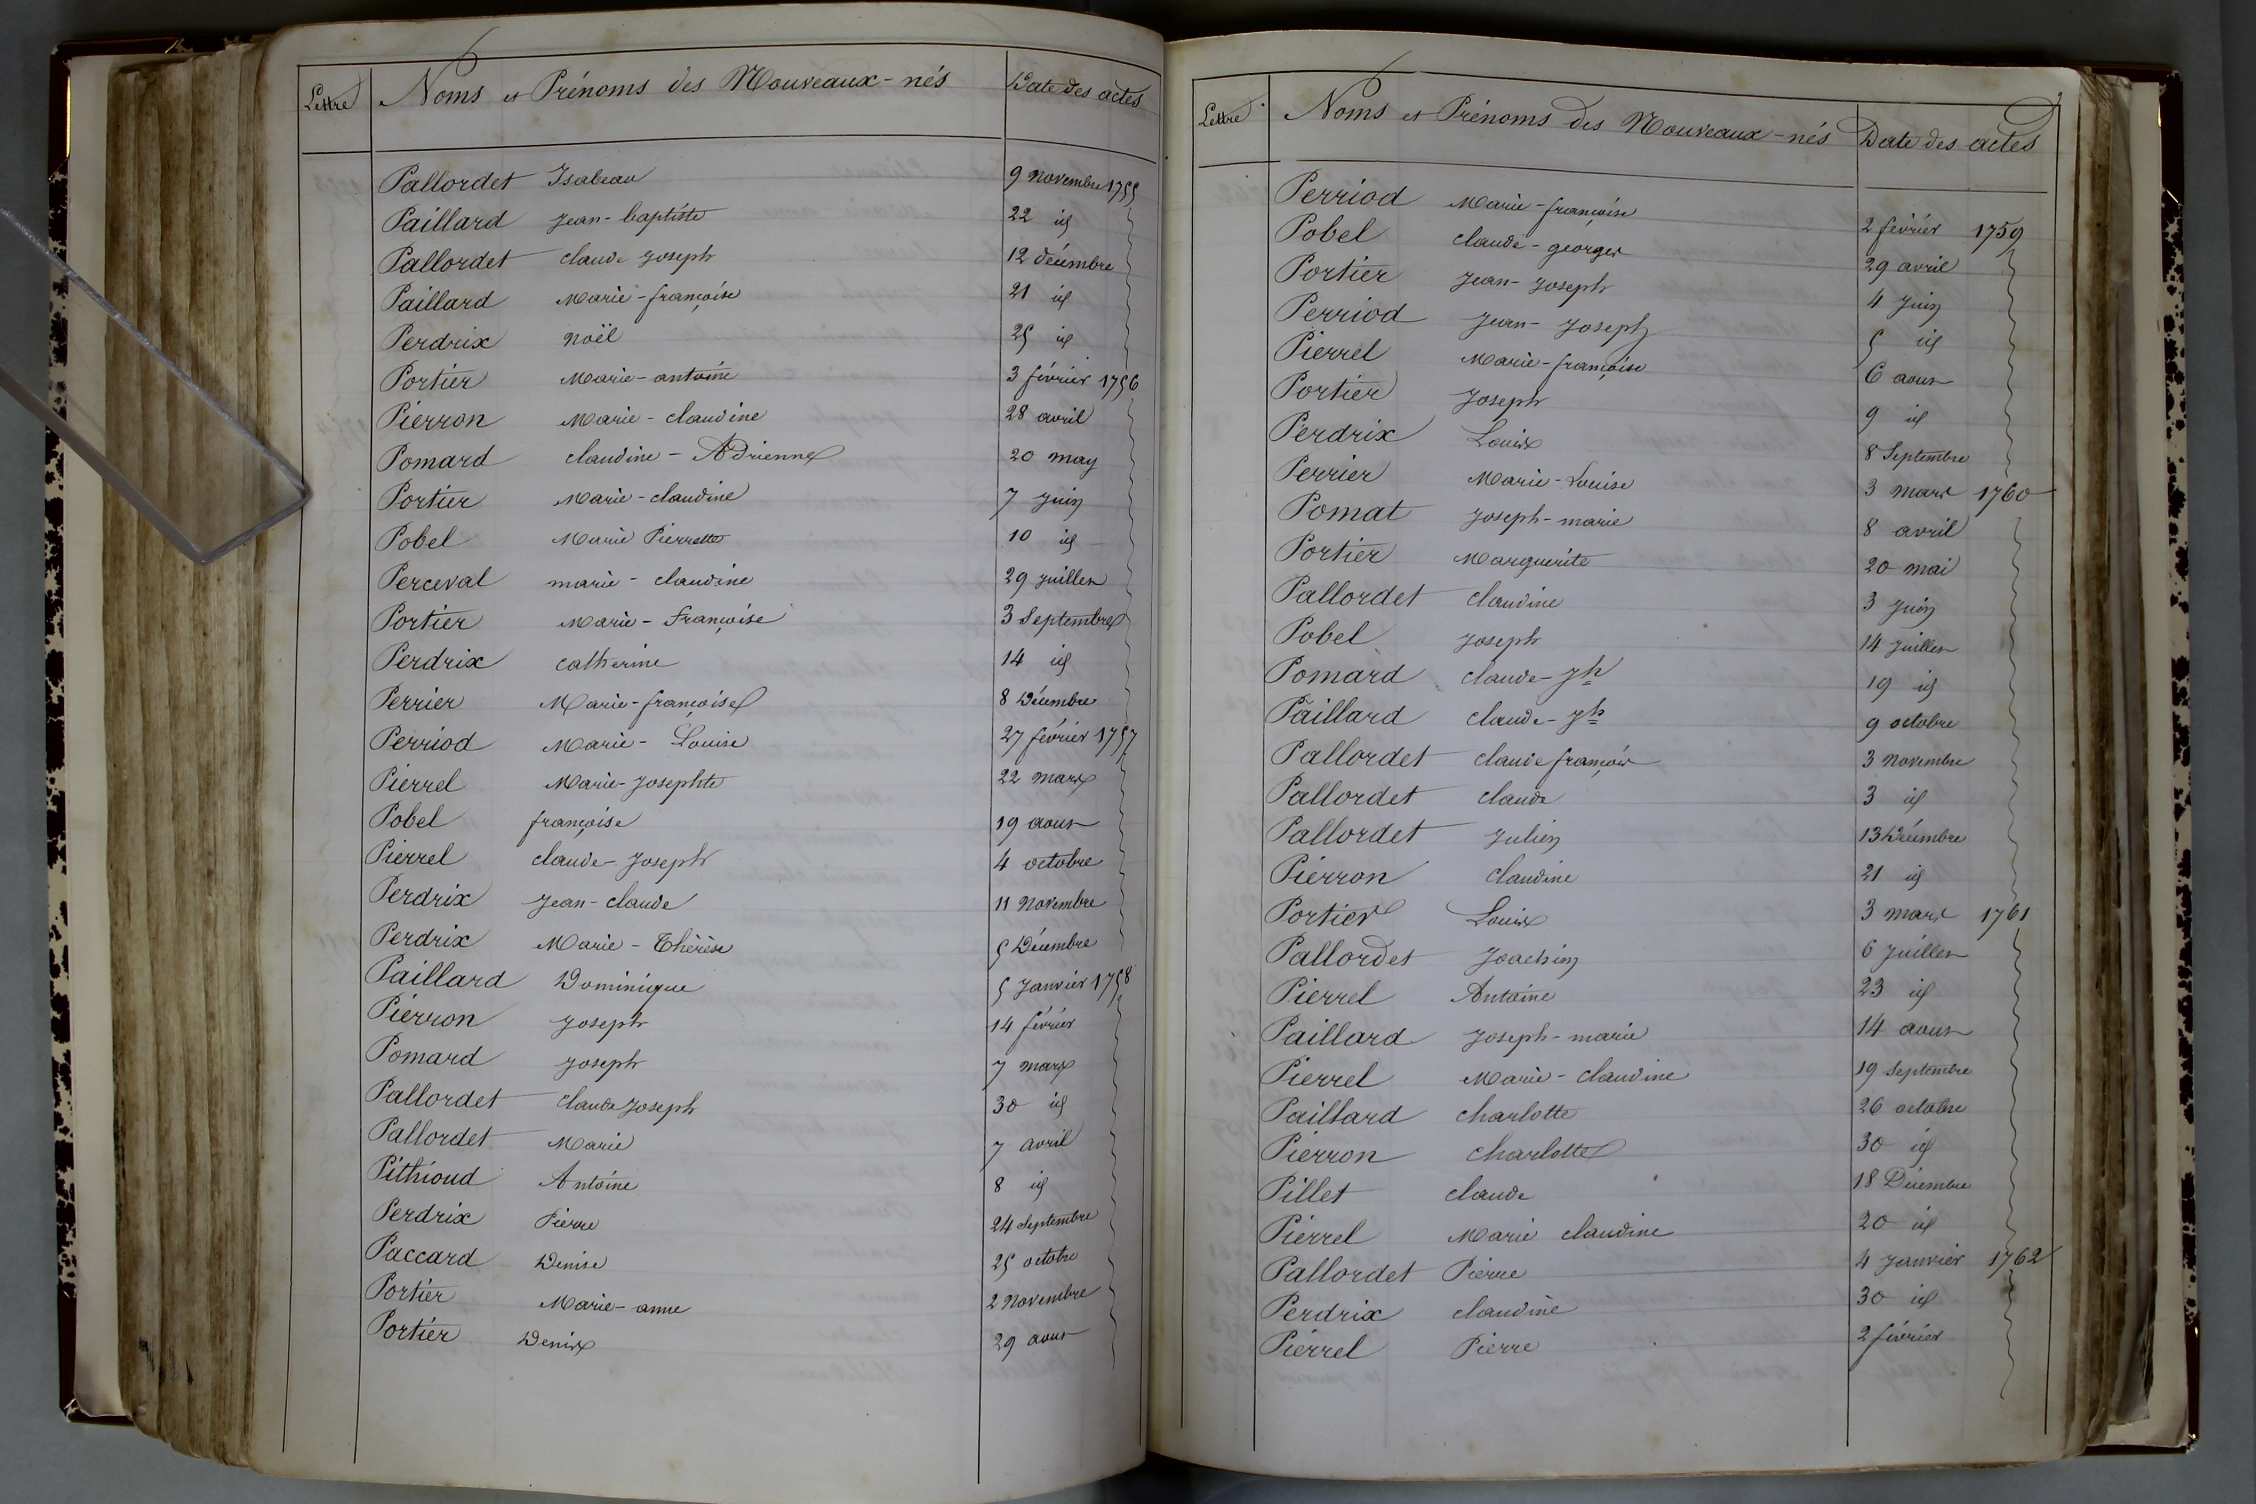 Lettre Noms et Prénoms des Nouveaux-nés Date des actes
Pallordet Isabeau 9 novembre 1755
Paillard Jean-baptiste 22 id
Pallordet claude joseph 12 décembre
Paillard Marie-françoise 21 id
Perdrix Noël 25 id
Portier Marie-antoine 3 février 1756
Pierron Marie-claudine 28 avril
Pomard claudine-Adrienne 20 may
Portier Marie-claudine 7 juin
Pobel Marie Pierrette 10 id
Perceval marie-claudine 29 juillet
Portier Marie-françoise 3 Septembre
Perdrix catherine 14 id
Perrier Marie-françoise 8 Décembre
Perriod Marie-Louise 27 février 1757
Pierrel Marie-Josephte 22 mars
Pobel françoise 19 aout
Pierrel claude-Joseph 4 octobre
Perdrix Jean-claude 11 Novembre
Perdrix Marie-Thérèse 5 Décembre
Paillard Dominique 5 Janvier 1758
Pierron Joseph 14 février
Pomard joseph 7 mars
Pallordet claude joseph 30 id
Pallordet Marie 7 avril
Pithioud Antoine 8 id
Perdrix Pierre 24 septembre
Paccard Denise 25 octobre
Portier Marie-anne 2 Novembre
Portier Denix 29 aout
Lettre Noms et Prénoms des Nouveaux-nés Date des actes
Perriod Marie-françoise 2 février 1759
Pobel claude-georges 29 avril
Portier Jean-Joseph 4 juin
Perriod Jean-Joseph 5 id
Pierrel Marie-françoise 6 aout
Portier Joseph 9 id
Perdrix Louix 8 Septembre
Perrier Marie-Louise 3 mars 1760
Pomat Joseph-marie 8 avril
Portier Marguerite 20 mai
Pallordet claudine 3 juin
Pobel joseph 14 juillet
Pomard claude-jh 19 id
Paillard claude-jh 9 octobre
Pallordet claude françois 3 novembre
Pallordet claude 3 id
Pallordet julien 13 Décembre
Pierron claudine 21 id
Portier Louix 3 mars 1761
Pallordet Joachim 6 juillet
Pierrel Antoine 23 id
Paillard Joseph-marie 14 aout
Pierrel Marie-claudine 19 septembre
Paillard charlotte 26 octobre
Pierron charlotte 30 id
Pillet claude 18 Décembre
Pierrel Marie claudine 20 id
Pallordet Pierre 4 janvier 1762
Perdrix claudine 30 id
Pierrel Pierre 2 février